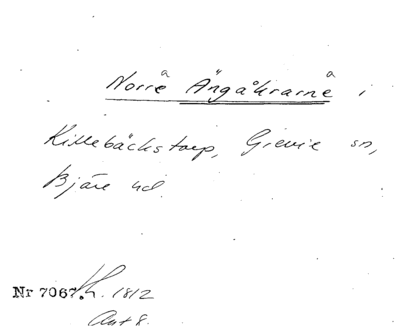 Norrẻ Ängåkrarnẻ i
Killebäckstorp, Grevie sn,
Bjäre hd.
Nr 7067. h. 1812
Akt 8.